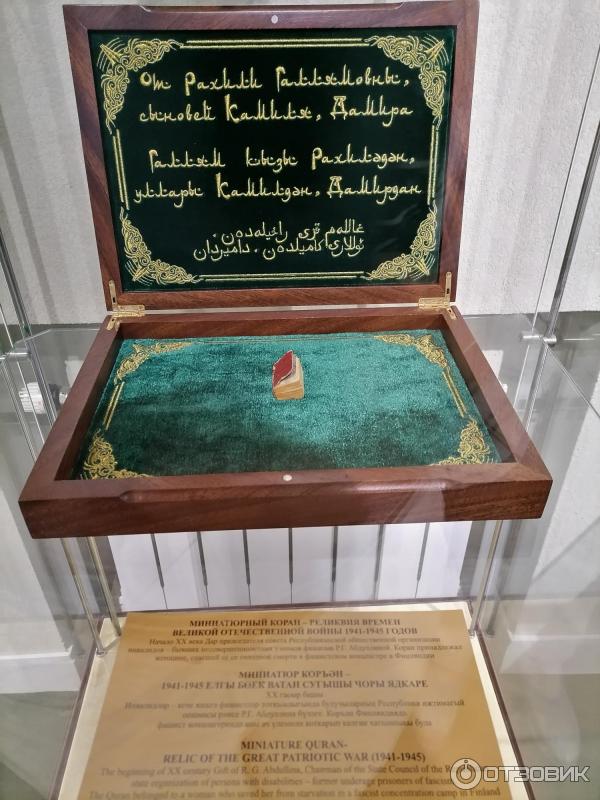 От Рахили Галлямовны,
сыновей Камиля, Дамира
Галлям кызы Рахилэдэн,
уллары Камилдэн, Дамирдан
غاللەم قزی راخیلەدەن.
ئۇللاری كامیلدەن. دامیردان
МИНИАТЮРНЫЙ КОРАН – РЕЛИКВИЯ ВРЕМЕН
ВЕЛИКОЙ ОТЕЧЕСТВЕННОЙ ВОЙНЫ 1941-1945 ГОДОВ
Начало XX века Дар председателя совета Республиканской общественной организации
инвалидов – бывших несовершеннолетних узников фашизма Р.Г. Абдуллиной. Коран принадлежал
женщине, спасшей ее от голодной смерти в фашистском концлагере в Финляндии
МИНИАТЮР КОРЪӘН –
1941-1945 ЕЛГЫ БӨЕК ВАТАН СУГЫШЫ ЧОРЫ ЯДКАРЕ
XX гасыр башы
оешмасы рәисе Р.Г. Абдуллина бүләге. Коръән Финляндиядә
фашист концлагеренда аны ач үлемнән коткарып калган хатынныкы була
MINIATURE QURAN-
RELIC OF THE GREAT PATRIOTIC WAR (1941-1945)
The beginning of XX century Gift of R. G. Abdullina, Chairman of the State Council of the
state organization of persons with disabilities – former underage prisoners of
The Quran belonged to a woman who saved her from starvation in a fascist concentration camp in Finland
ОТЗОВИК